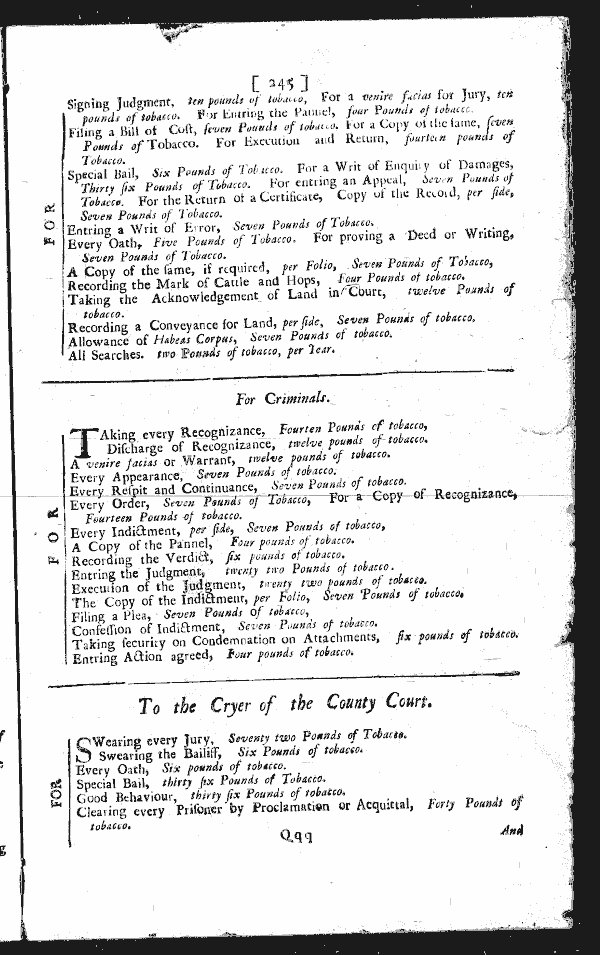 [ 245 ]
Signing Judgment, ten pounds of tobacco, For a venire facias for Jury, ten
pounds of tobacco. For Entring the Pannel, four Pounds of tobacco.
Filing a Bill of Coſt, ſeven Pounds of tobacco. For a Copy of the ſame, ſeven
Pounds of Tobacco. For Execution and Return, fourteen pounds of
Tobacco.
Special Bail, Six Pounds of Tobacco. For a Writ of Enquiry of Damages,
Thirty ſix Pounds of Tobacco. For entring an Appeal, Seven Pounds of
Tobacco. For the Return of a Certificate, Copy of the Record, per ſide,
Seven Pounds of Tobacco.
Entring a Writ of Error, Seven Pounds of Tobacco.
Every Oath, Five Pounds of Tobacco. For proving a Deed or Writing,
Seven Pounds of Tobacco.
A Copy of the ſame, if required, per Folio, Seven Pounds of Tobacco,
Recording the Mark of Cattle and Hogs, Four Pounds of tobacco.
Taking the Acknowledgement of Land in Court, twelve Pounds of
tobacco.
Recording a Conveyance for Land, per ſide, Seven Pounds of tobacco,
Allowance of Habeas Corpus, Seven Pounds of tobacco.
All Searches. two Pounds of tobacco, per Year.
FOR
For Criminals.
TAking every Recognizance, Fourten Pounds of tobacco,
Diſcharge of Recognizance, twelve pounds of tobacco.
A venire facias or Warrant, twelve pounds of tobacco.
Every Appearance, Seven Pounds of tobacco.
Every Reſpit and Continuance, Seven Pounds of tobacco.
Every Order, Seven Pounds of Tobacco, For a Copy of Recognizance,
Fourteen Pounds of tobacco.
Every Indictment, per ſide, Seven Pounds of tobacco,
A Copy of the Pannel, Four pounds of tobacco.
Recording the Verdict, ſix pounds of tobacco.
Entring the Judgment, twenty two Pounds of tobacco.
Execution of the Judgment, twenty two pounds of tobacco.
The Copy of the Indictment, per Folio, Seven Pounds of tobacco,
Filing a Plea, Seven Pounds of tobacco,
Confeſſion of Indictment, Seven Pounds of tobacco.
Taking ſecurity on Condemnation on Attachments, ſix pounds of tobacco.
Entring Action agreed, Four pounds of tobacco.
FOR
To the Cryer of the County Court.
SWearing every Jury, Seventy two Pounds of Tobacco.
Swearing the Bailiff, Six Pounds of tobacco.
Every Oath, Six pounds of tobacco.
Special Bail, thirty ſix Pounds of Tobacco.
Good Behaviour, thirty ſix Pounds of tobacco.
Clearing every Priſoner by Proclamation or Acquittal, Forty Pounds of
tobacco.
FOR
Qqq
And